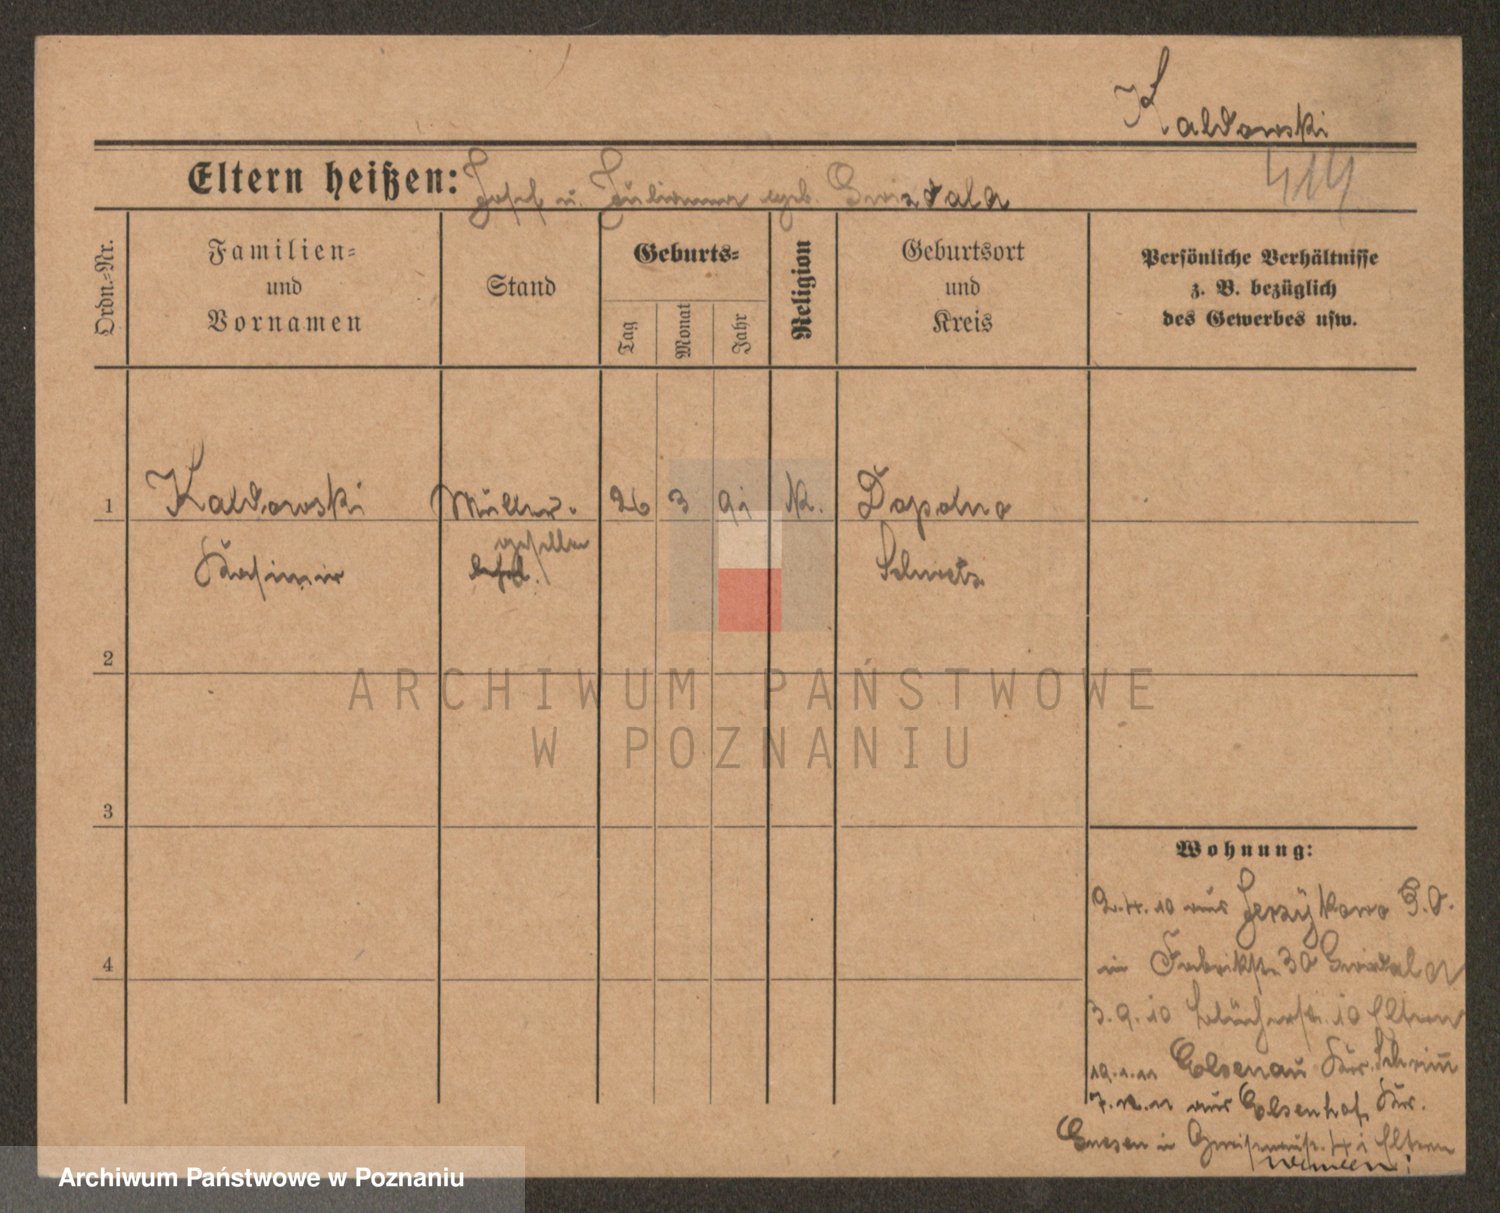 Kaldowski
414
Eltern heißen: Josef u. Julianna geb. Gwizdala
Ordn.-Nr.
Familien-
und
Vornamen
Stand
Geburts-
Tag
Monat
Jahr
Religion
Geburtsort
und
Kreis
Persönliche Verhältnisse
z. B. bezüglich
des Gewerbes usw.
1 Kaldowski Müller- 26 3 91 K. Dopolno
geselle
Kasimir Schwetz
2
3
4
Wohnung:
2.4.10 aus Jerzykowo P.O.
in Fabrikstr. 30 Gwizdala
3.9.10 Blücherstr. 10 Eltern
19.1.11 Elsenau Kr. Schrimm
7.12.11 aus Elsenhof, Kr.
Gnesen in Gneisenaustr. 4 i Eltern
ARCHIWUM PAŃSTWOWE
W POZNANIU
Archiwum Państwowe w Poznaniu